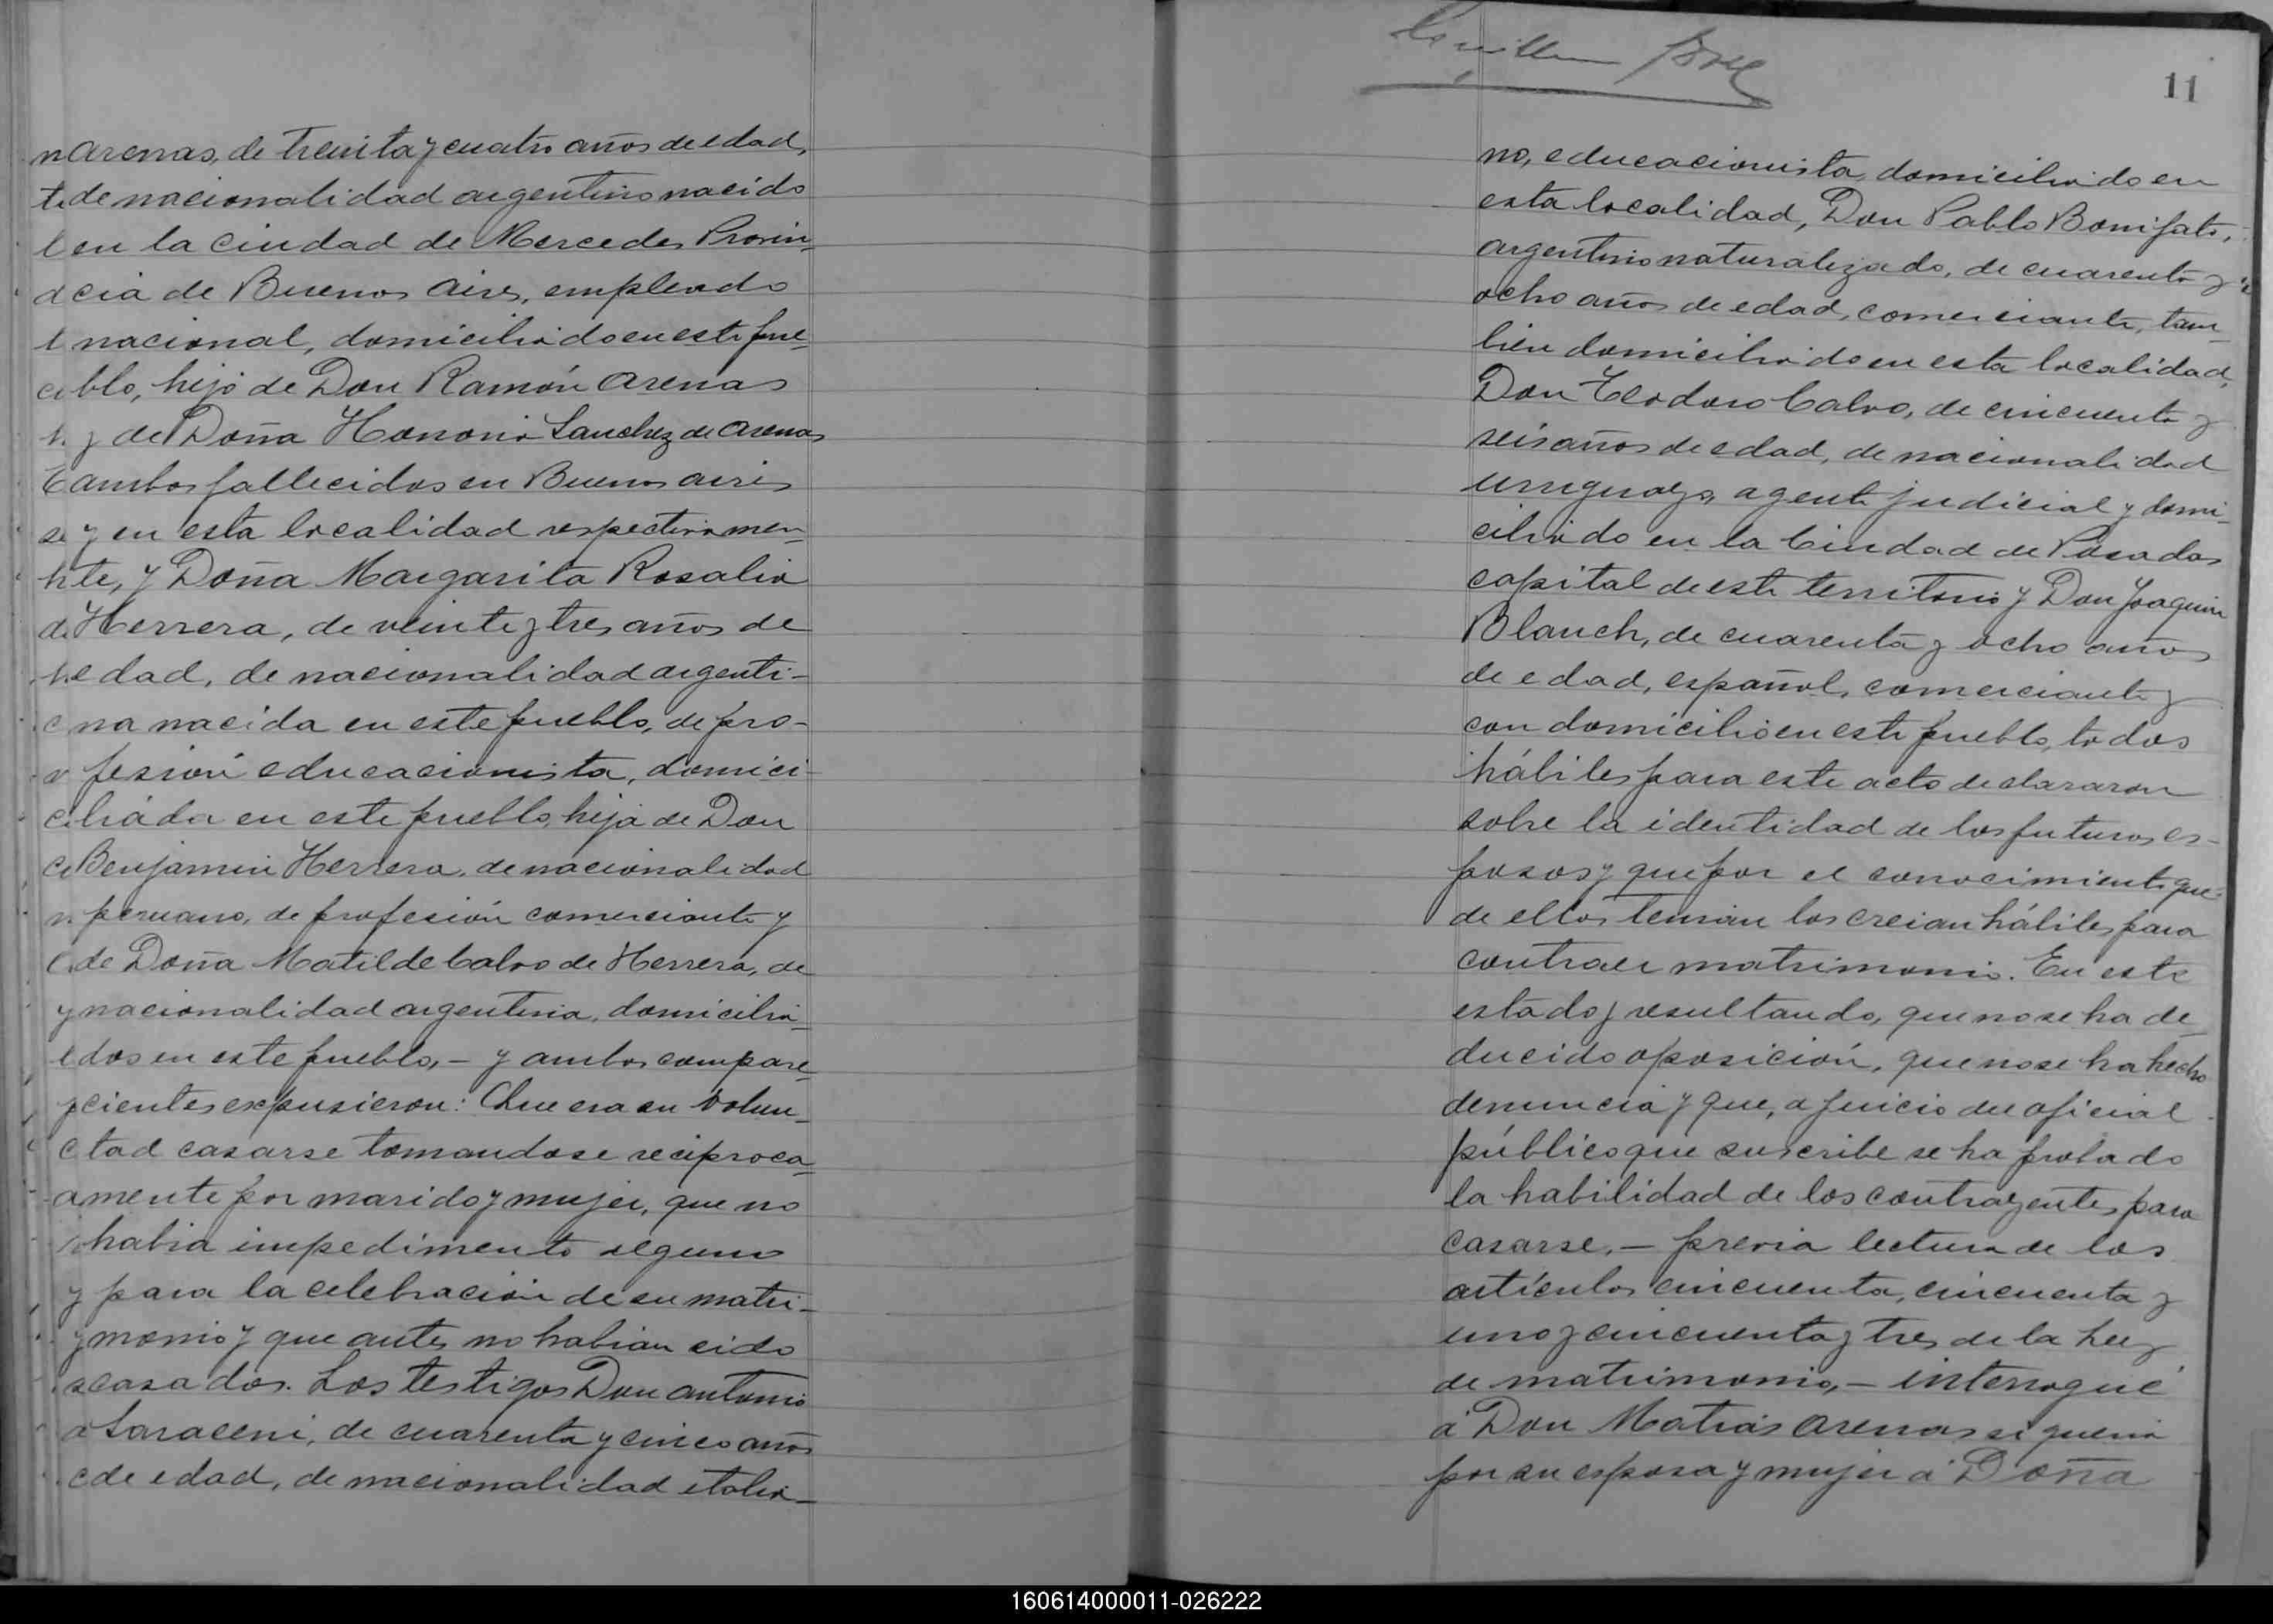 Arenas, de treinta y cuatro años de edad,
de nacionalidad argentino nacido
en la ciudad de Mercedes Provin-
cia de Buenos Aires, empleado
nacional, domiciliado en este pue-
blo, hijo de Don Ramón Arenas
y de Doña Honoria Sanchez de Arenas
ambos fallecidos en Buenos Aires
y en esta localidad respectivamen-
te, y Doña Margarita Rosalia
Herrera, de veinte y tres años de
edad, de nacionalidad argenti-
na nacida en este pueblo, de pro-
fesión educacionista, domici-
liada en este pueblo, hija de Don
Benjamin Herrera, de nacionalidad
peruano, de profesión comerciante y
de Doña Matilde Calvo de Herrera, de
nacionalidad argentina, domicilia-
dos en este pueblo, - y ambos compare-
cientes expusieron: Que era su volun-
tad casarse tomandose reciproca-
mente por marido y mujer, que no
habia impedimento alguno
para la celebración de su matri-
monio y que antes no habian sido
casados. Los testigos Don Antonio
Saraceni, de cuarenta y cinco años
de edad, de nacionalidad italia-
11
no, educacionista, domiciliado en
esta localidad, Don Pablo Bonifato,
argentino naturalizado, de cuarenta y
ocho años de edad, comerciante, tam-
bién domiciliado en esta localidad,
Don Teodoro Calvo, de cincuenta y
seis años de edad, de nacionalidad
uruguayo, agente judicial y domi-
ciliado en la Ciudad de Posadas
capital de este territorio y Don Joaquin
Blanch, de cuarenta y ocho años
de edad, español, comerciante y
con domicilio en este pueblo, todos
hábiles para este acto declararon
sobre la identidad de los futuros es-
posos y que por el conocimiento que
de ellos tenian los creian hábiles para
contraer matrimonio. En este
estado y resultando, que no se ha de-
ducido oposición, que no se ha hecho
denuncia y que, a juicio del oficial
público que suscribe se ha probado
la habilidad de los contrayentes para
casarse, - previa lectura de los
artículos cincuenta, cincuenta y
uno y cincuenta y tres de la Ley
de matrimonio, - interrogué
á Don Matías Arenas si queria
por su esposa y mujer á Doña
160614000011-026222